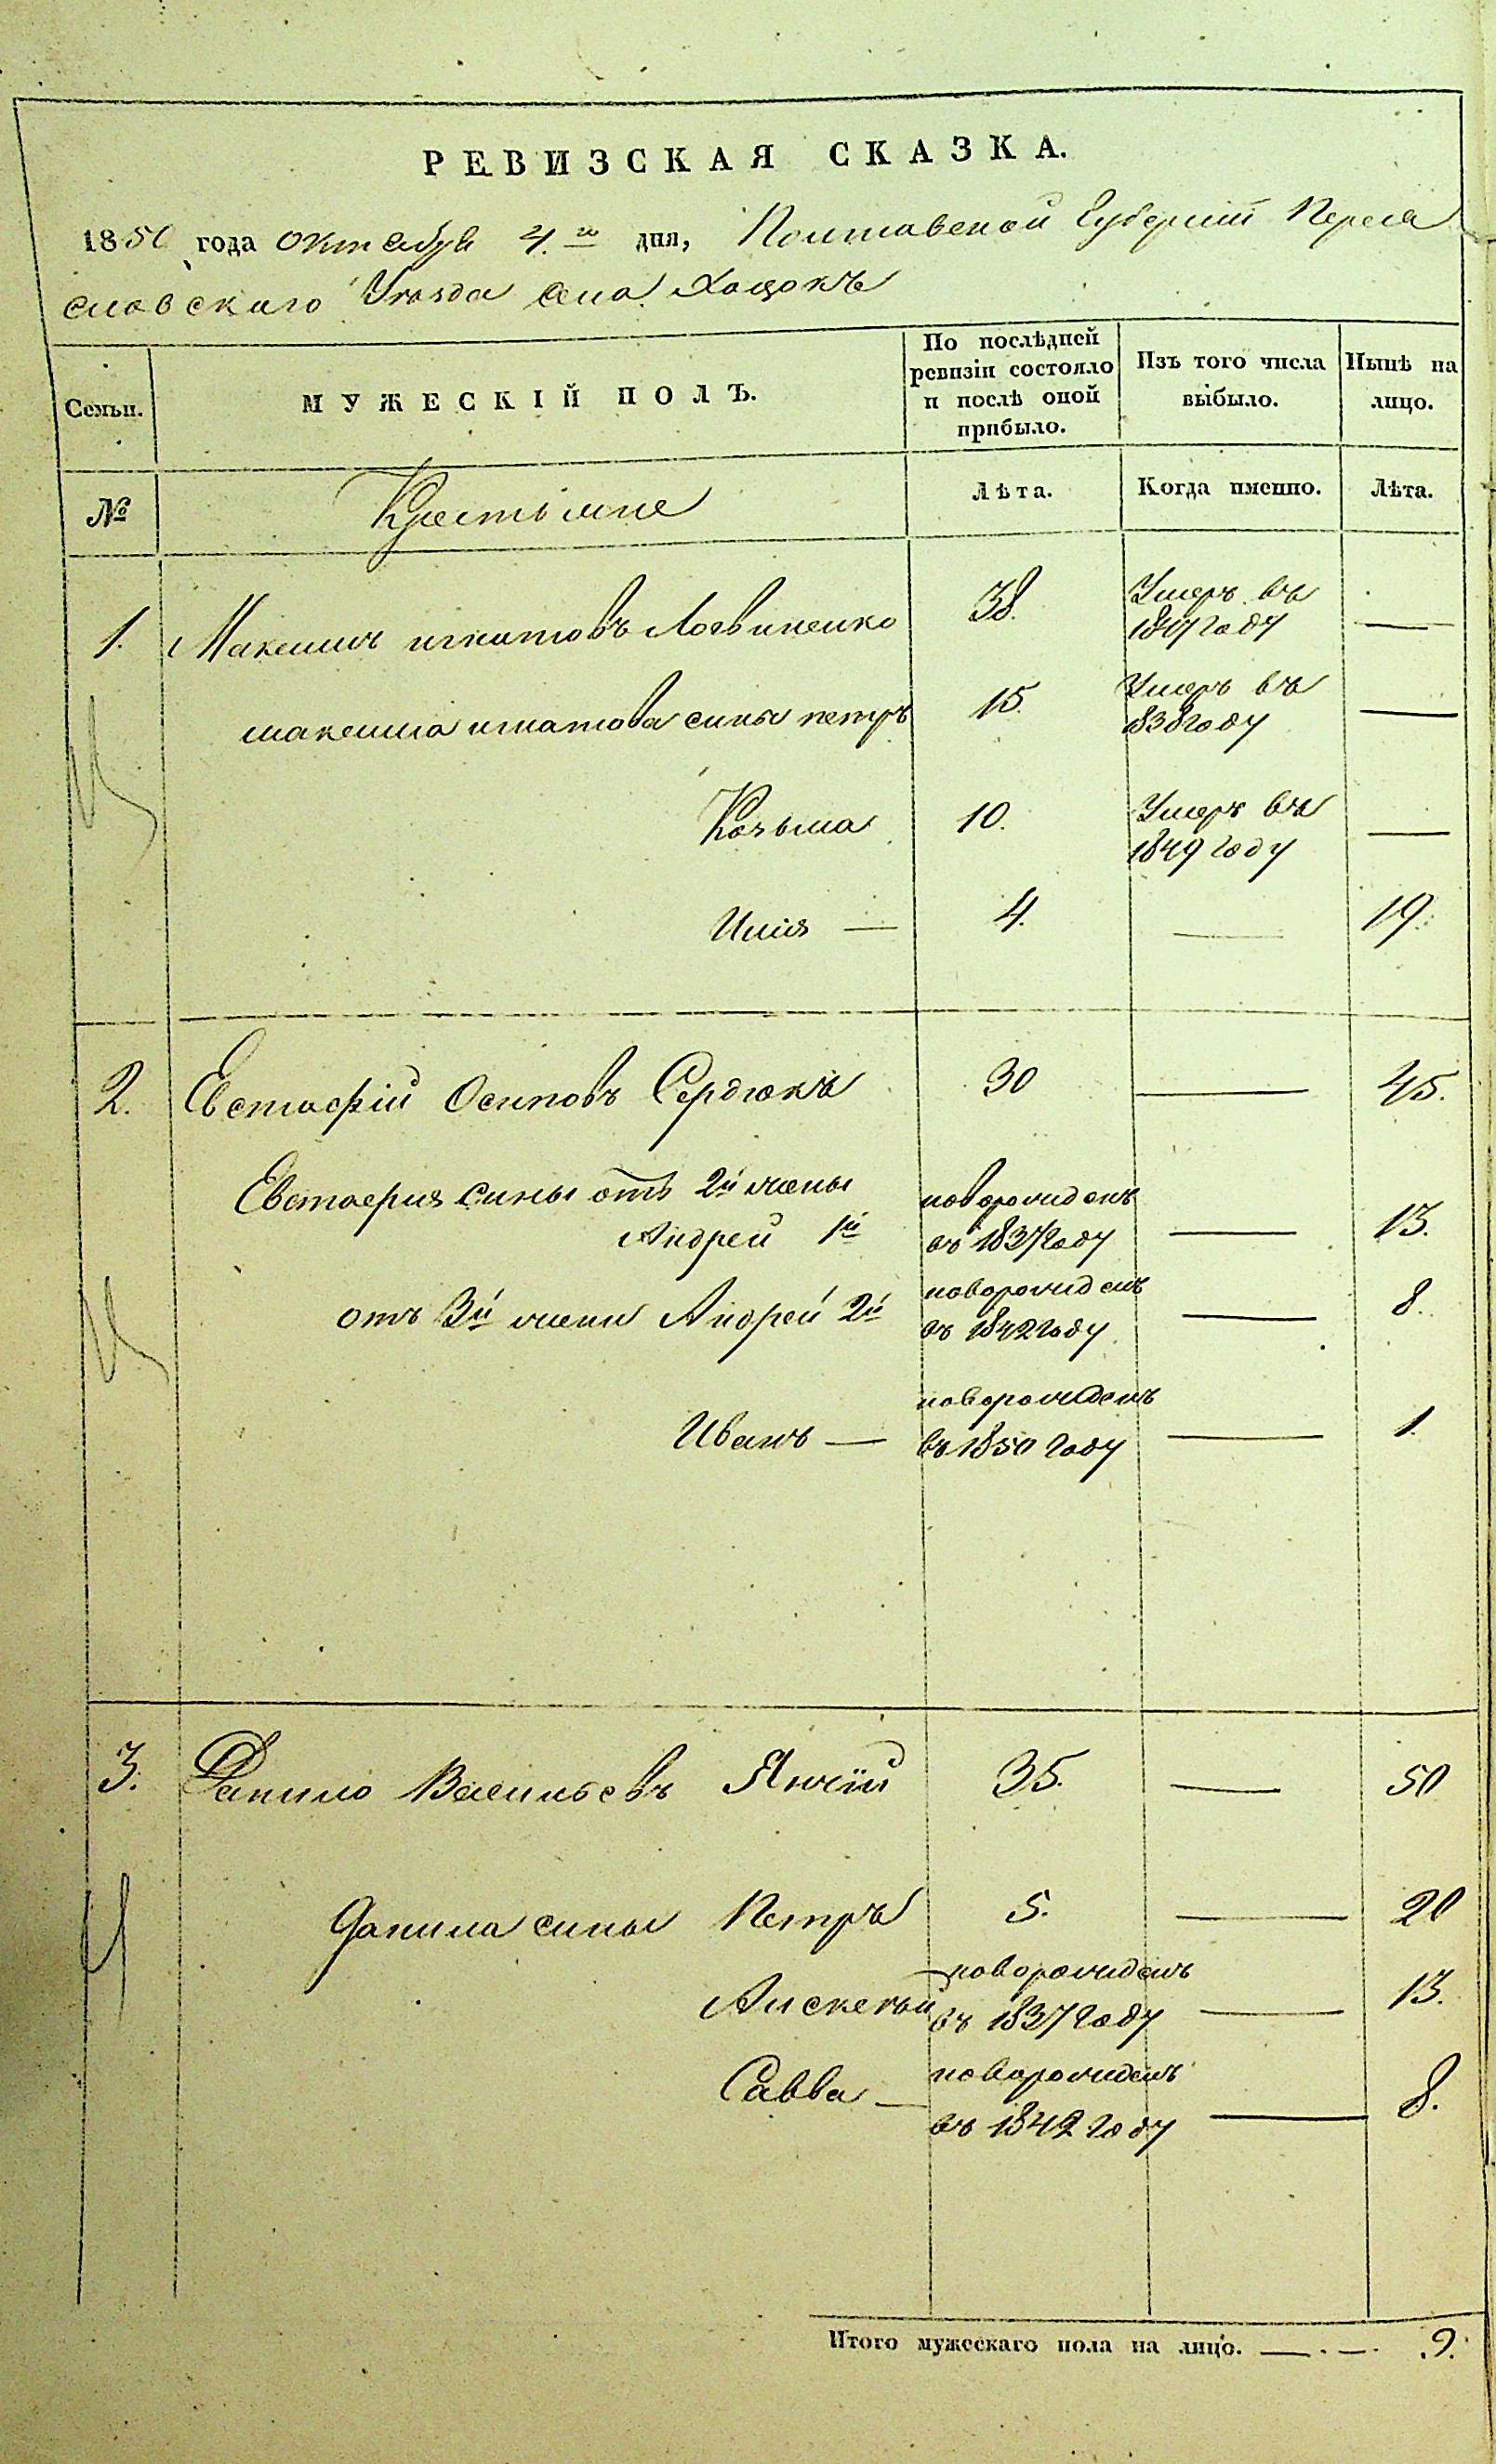 РЕВИЗСКАЯ СКАЗКА.
1850 года октября 4.го дня, Полтавской Губернiи Перея
словского Уезда села Хоцокъ
Семьи.
МУЖЕСКIЙ ПОЛЪ.
По послѣдней
ревизiи состояло
и послѣ оной
прибыло.
Изъ того числа
выбыло.
Нынѣ на
лицо.
№
Крестьяне
Лѣта.
Когда именно.
Лѣта.
1. Максимъ игнатовъ Логвиненко 38. Умеръ въ
1847 году —
максима игнатова сины петръ 15. Умеръ въ
1838 году —
Козьма 10. Умеръ въ
1849 году —
Илiя — 4. — 19.
2. Евстафiй Осиповъ Сердюкъ 30 — 45.
Евстафия сины отъ 2й жены
Андрей 1й новорожденъ
въ 1837 году — 13.
отъ 3й жены Андрей 2й новорожденъ
въ 1842 году — 8.
Иванъ — новорожденъ
въ 1850 году — 1
3. Данило Васильевъ 35. — 50
Данила сины Петръ 5. — 20
Алексей новорожденъ
въ 1837 году — 13.
Савва — новорожденъ
въ 1842 году — 8.
Итого мужескаго пола на лицо. — . — . 9.